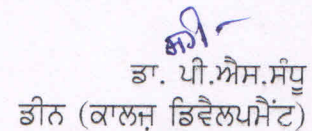 ਡਾ. ਪੀ.ਐਸ.ਸੰਧੂ
ਡੀਨ (ਕਾਲਜ਼ ਡਿਵੈਲਪਮੈਂਟ)